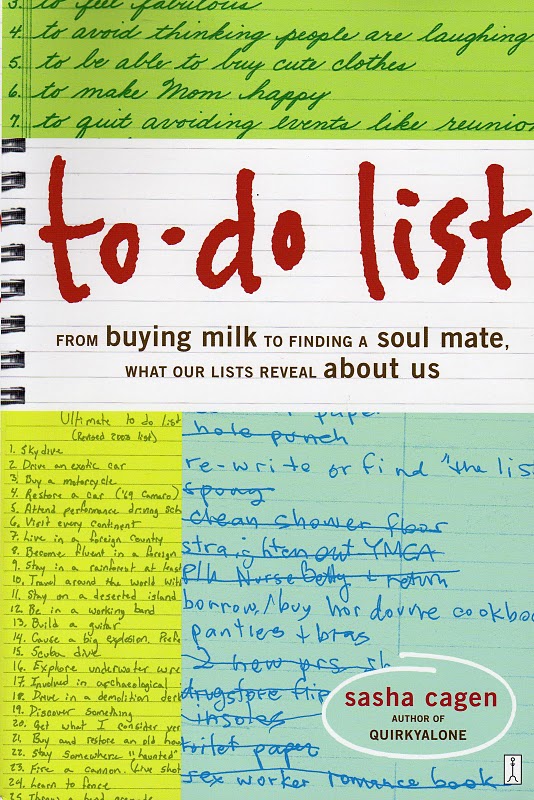 3. to feel fabulous
4. to avoid thinking people are laughing
5. to be able to buy cute clothes
6. to make Mom happy
7. to quit avoiding events like reunion
to-do list
FROM buying milk TO FINDING A soul mate,
WHAT OUR LISTS REVEAL about us
Ultimate to do list
(Revised 2003 list)
1. Skydive
2. Drive an exotic car
3. Buy a motorcycle
4. Restore a car ('69 Camaro)
5. Attend performance driving sch
6. Visit every continent
7. Live in a foreign country
8. Become fluent in a foreign
9. Stay in a rainforest at least
10. Travel around the world with
11. Stay on a deserted island
12. Be in a working band
13. Build a guitar
14. Cause a big explosion.
15. Scuba dive
16. Explore underwater
17. Involved in archaeological
18. Drive in a demolition
19. Discover something
20. Get what I consider
21. Buy and restore an old hou
22. Stay somewhere "haunted"
23. Fire a cannon. (Live shot
24. Learn to fence
25. Throw a
paper
hole punch
re-write or find "the lis
spong
clean shower floor
straighten out YMCA
P/U Nurse Betty + return
borrow/buy hor douvre cookboo
panties + bras
2 new prs
drugstore flip
insoles
toilet paper
sex worker romance book
sasha cagen
AUTHOR OF
QUIRKYALONE